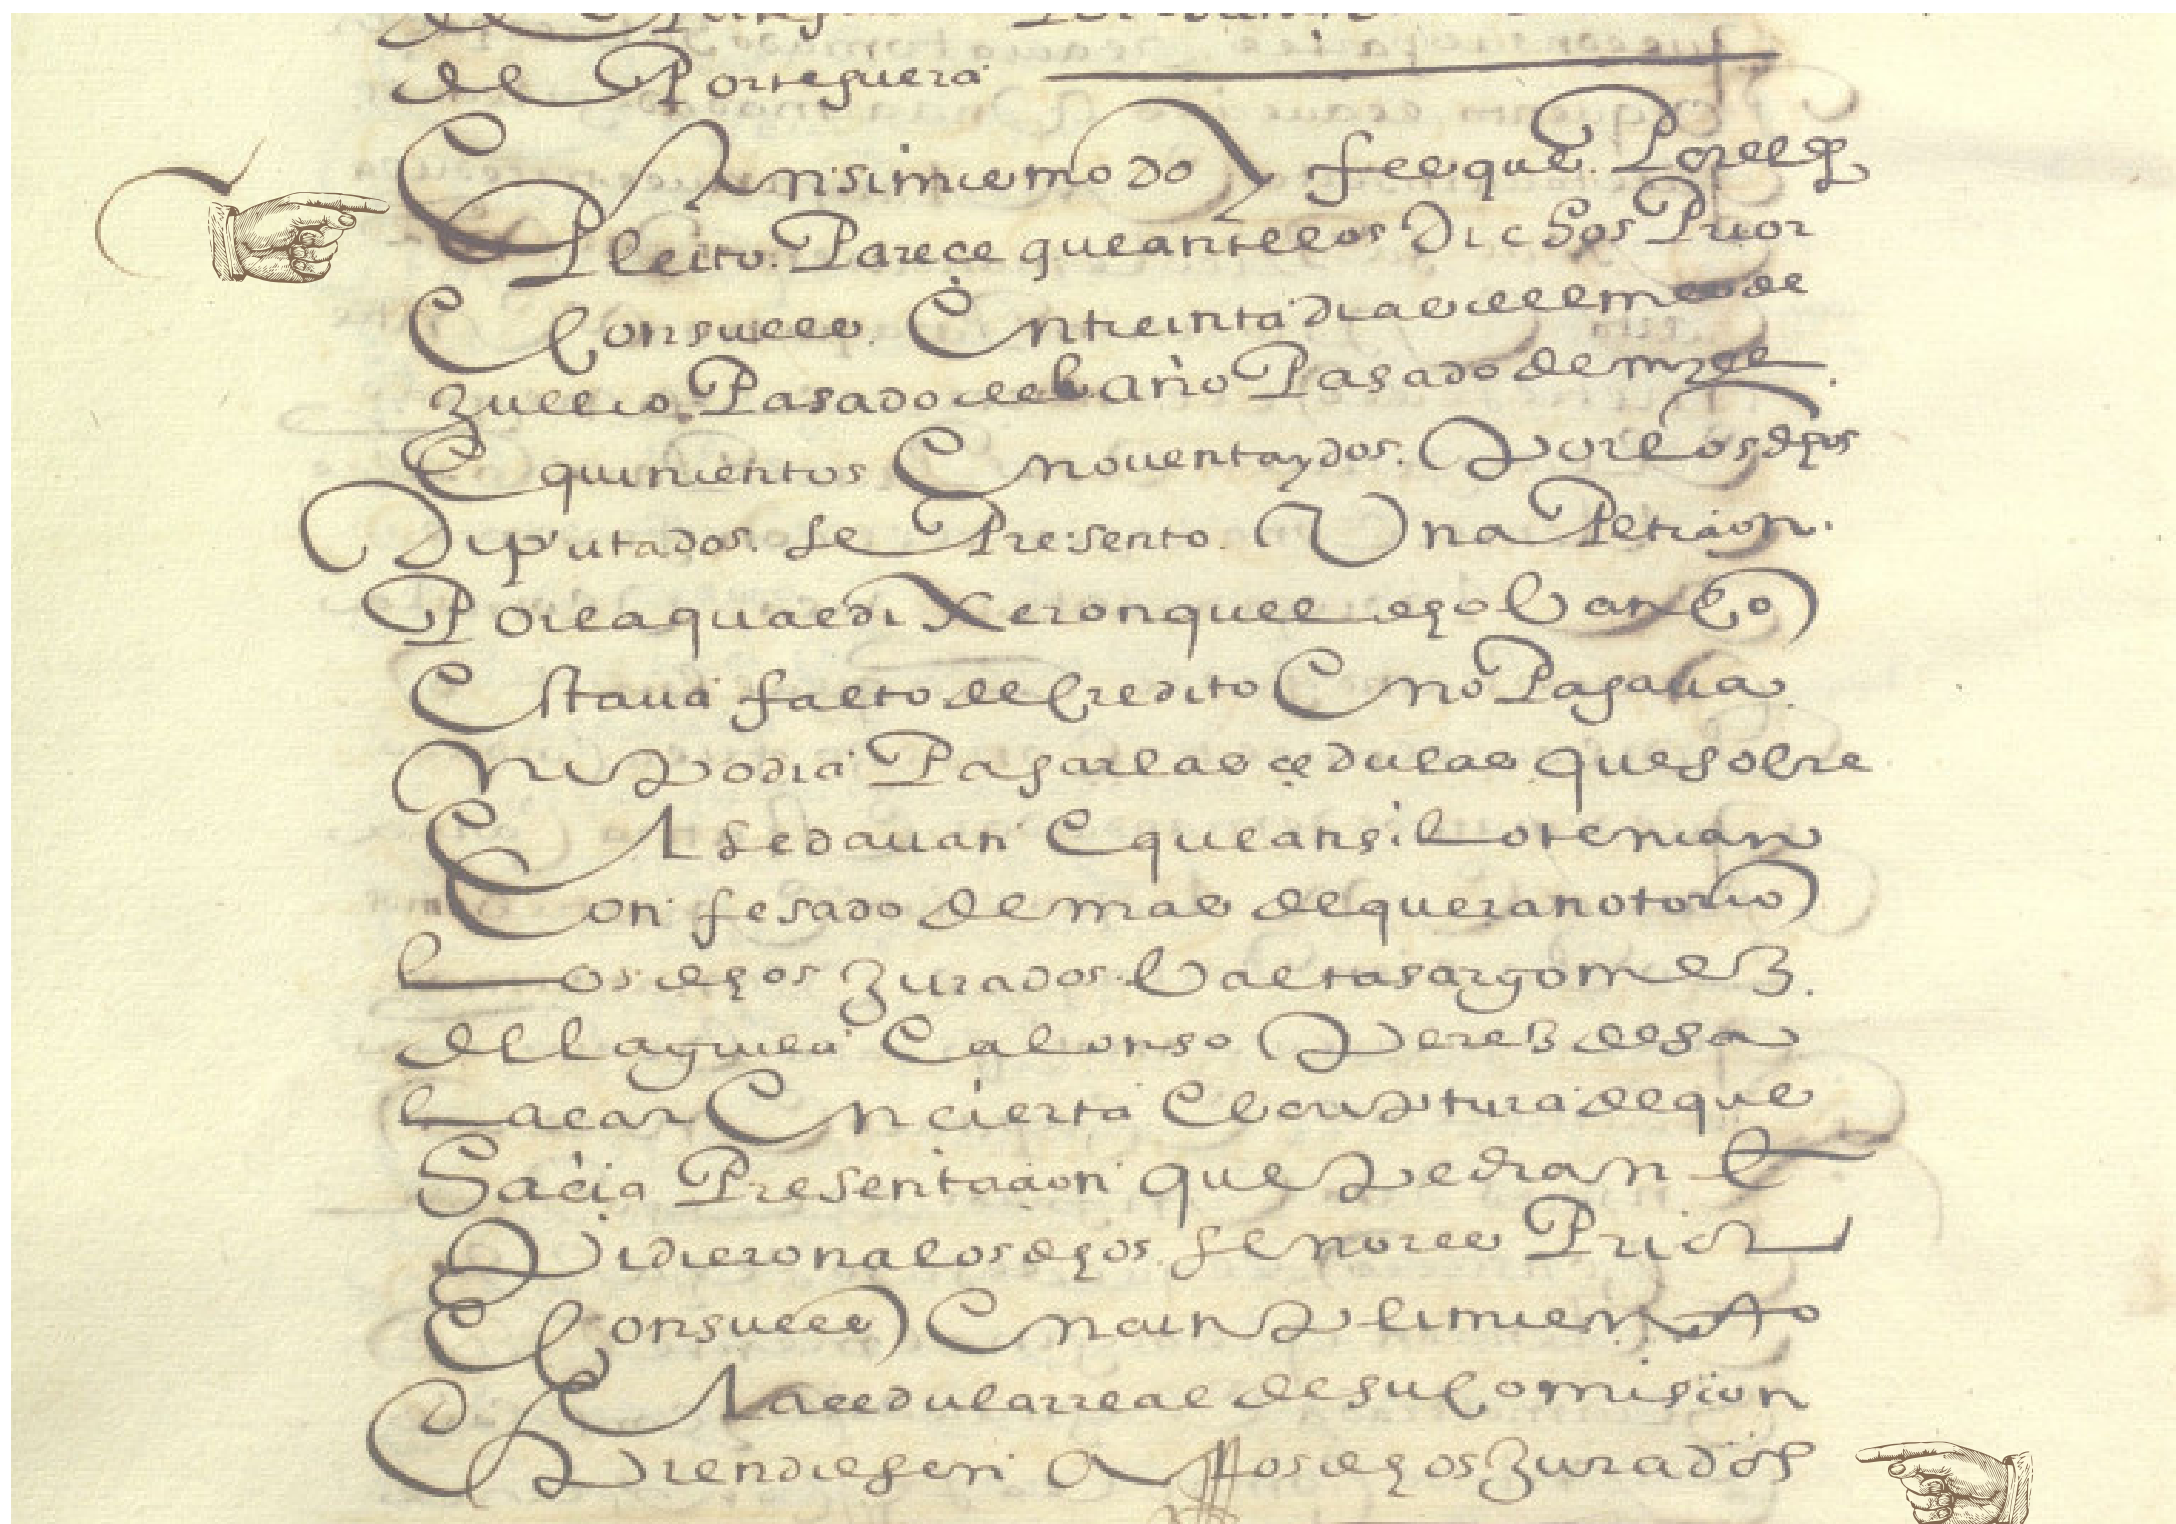 de Porteguera
E Ansimiemo do y fee que Por el dho
Pleito Parece que ante los Dichos Prior
E Consules En treinta dias del mes de
Jullio Pasado del año Pasado de mill
E quinientos E noventa y dos Por los dhos
Diputados se Presento Una Peticion
Por la qual dixeron quel dho banco
Estaua falto de Credito E no Pagaua
ni Podia Pagar las cedulas que sobre
El se dauan E que ansi lo tenian
Confesado demas de que era notorio
los dhos Jurados baltasar gomez
del aguila E alonso Perez de sa
lacar En cierta Escriptura de que
hacia Presentacion que Pedian E
Pidieron a los dhos señores Prior
E Consules En cunplimiento
de la cedula rreal de su Comision
Prendiesen A los dhos Jurados